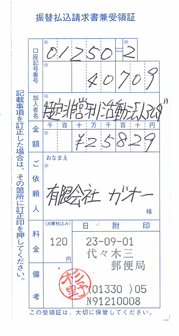 振替払込請求書兼受領証
口座記号番号
01250=2
40709
加入者名
特定非営利活動法人329
金額
千 百 十 万 千 百 十 円
¥25829
ご依頼人
おなまえ
有限会社 ガオー
様
料金
(消費税込み)
120
円
日附印
23-09-01
代々木三
郵便局
(01330)05
N91210008
備考
この受領証は、大切に保管してください。
記載事項を訂正した場合は、その箇所に訂正印を押してください。